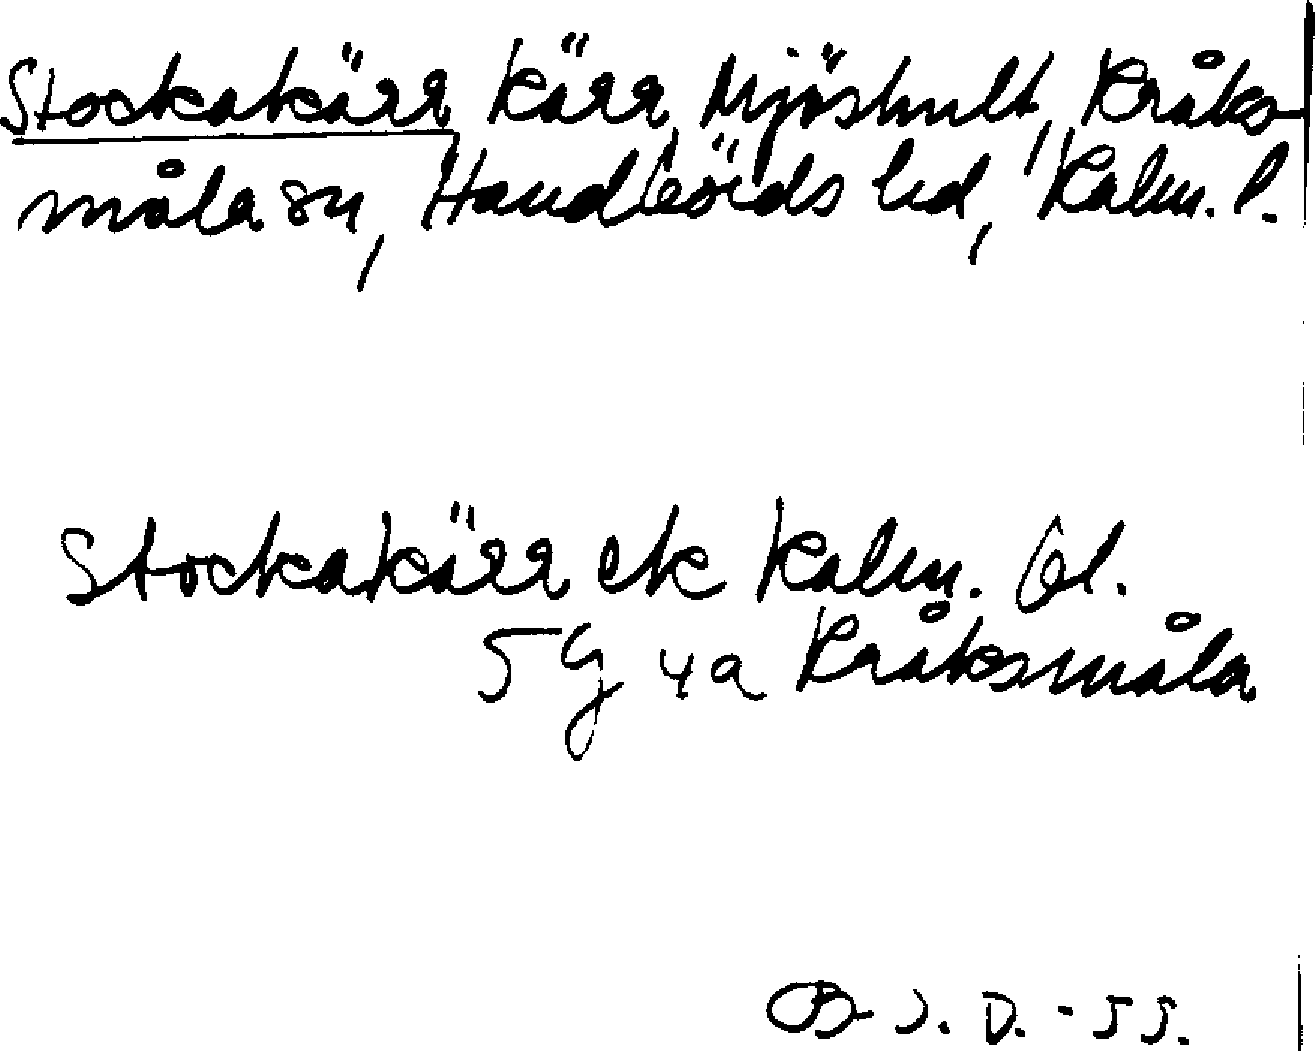 Stockakärr, kärr, Mjöshult, Kråks-
måla sn, Handbörds hd, Kalm. l.
Stockakärr ek Kalm. bl.
5 G 4 a Kråksmåla
B. J. D. - 55.